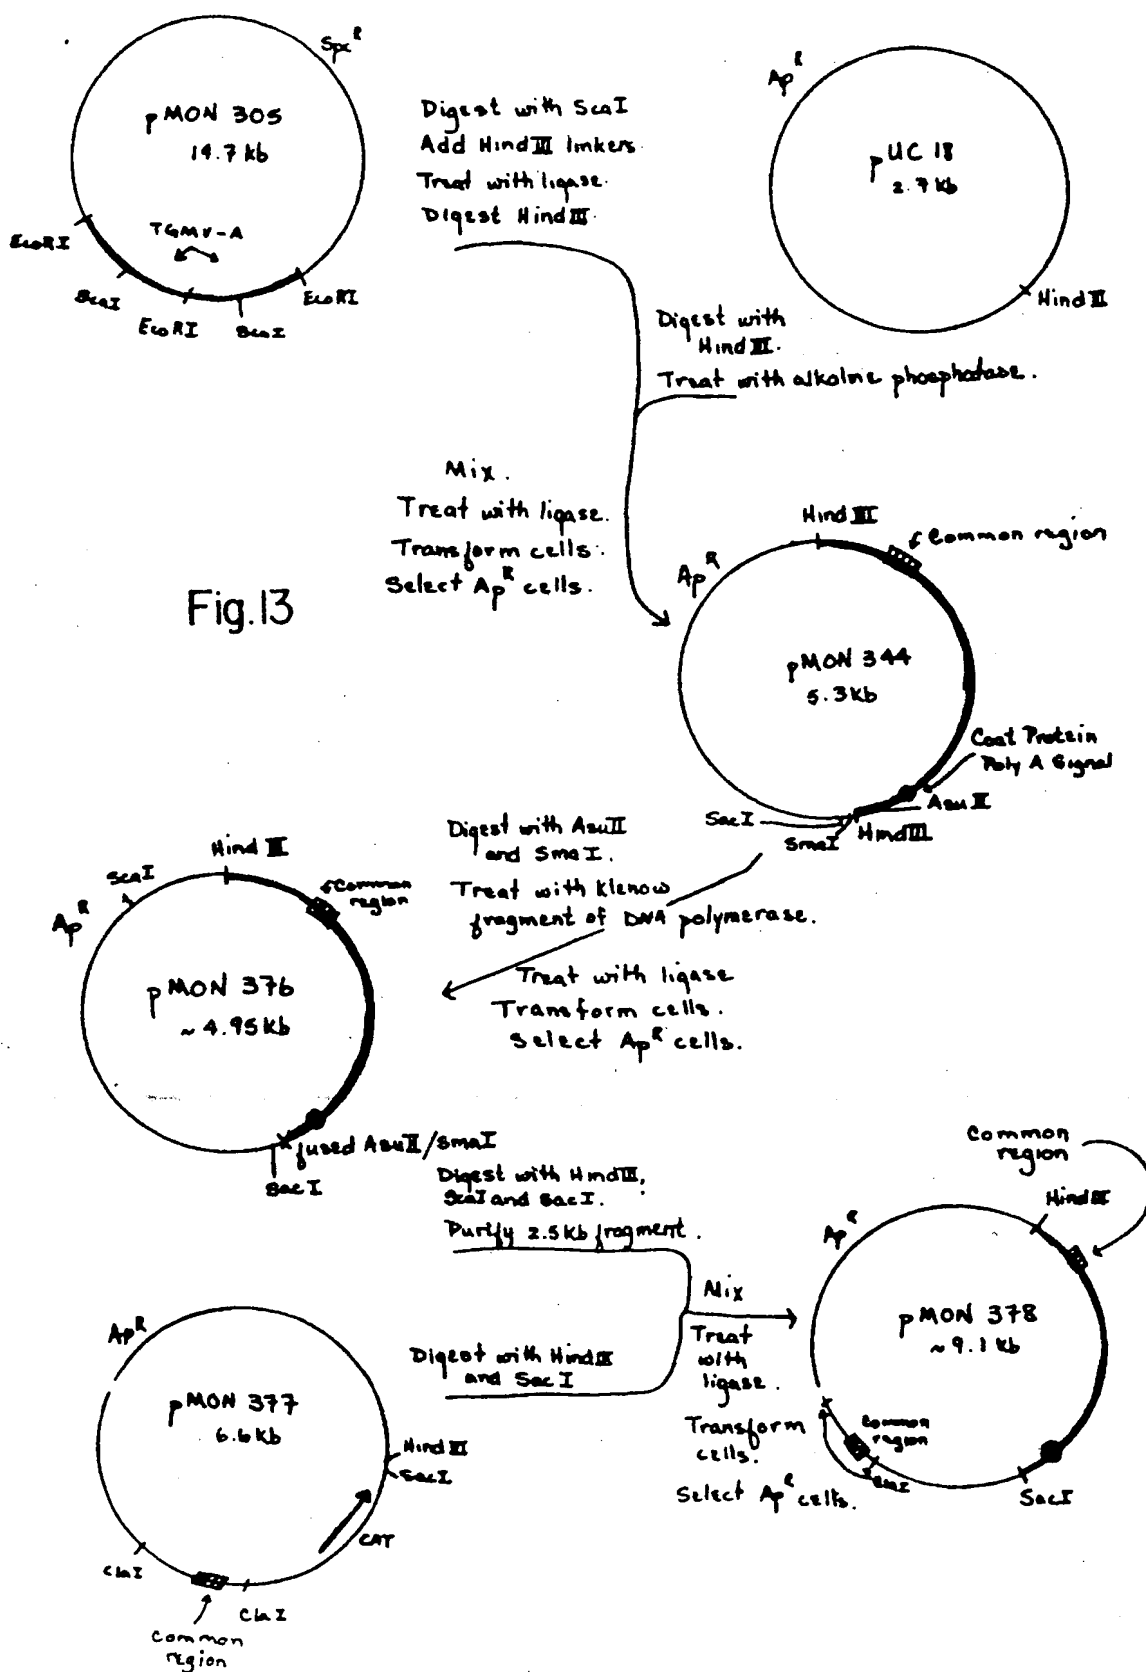 Spc R
pMON 305
14.7 kb
TGMV-A
EcoRI
ScaI
EcoRI
ScaI
EcoRI
Digest with ScaI
Add HindIII linkers.
Treat with ligase.
Digest HindIII.
Ap R
pUC 18
2.7 kb
HindIII
Digest with
HindIII.
Treat with alkaline phosphatase.
Mix.
Treat with ligase.
Transform cells.
Select Ap R cells.
Fig.13
HindIII
Common region
Ap R
pMON 344
5.3 kb
Coat Protein
Poly A Signal
AsuII
HindIII
SmaI
SacI
Digest with AsuII
and SmaI.
Treat with Klenow
fragment of DNA polymerase.
Treat with ligase
Transform cells.
Select Ap R cells.
HindIII
ScaI
Ap R
Common
region
pMON 376
~4.95 kb
fused AsuII/SmaI
SacI
Digest with HindIII,
ScaI and SacI.
Purify 2.5 kb fragment.
Ap R
pMON 377
6.6 kb
HindIII
SacI
CAT
ClaI
ClaI
Common
region
Digest with HindIII
and SacI
Mix
Treat
with
ligase.
Transform
cells.
Select Ap R cells.
Common
region
HindIII
Ap R
pMON 378
~9.1 kb
Common
region
SacI